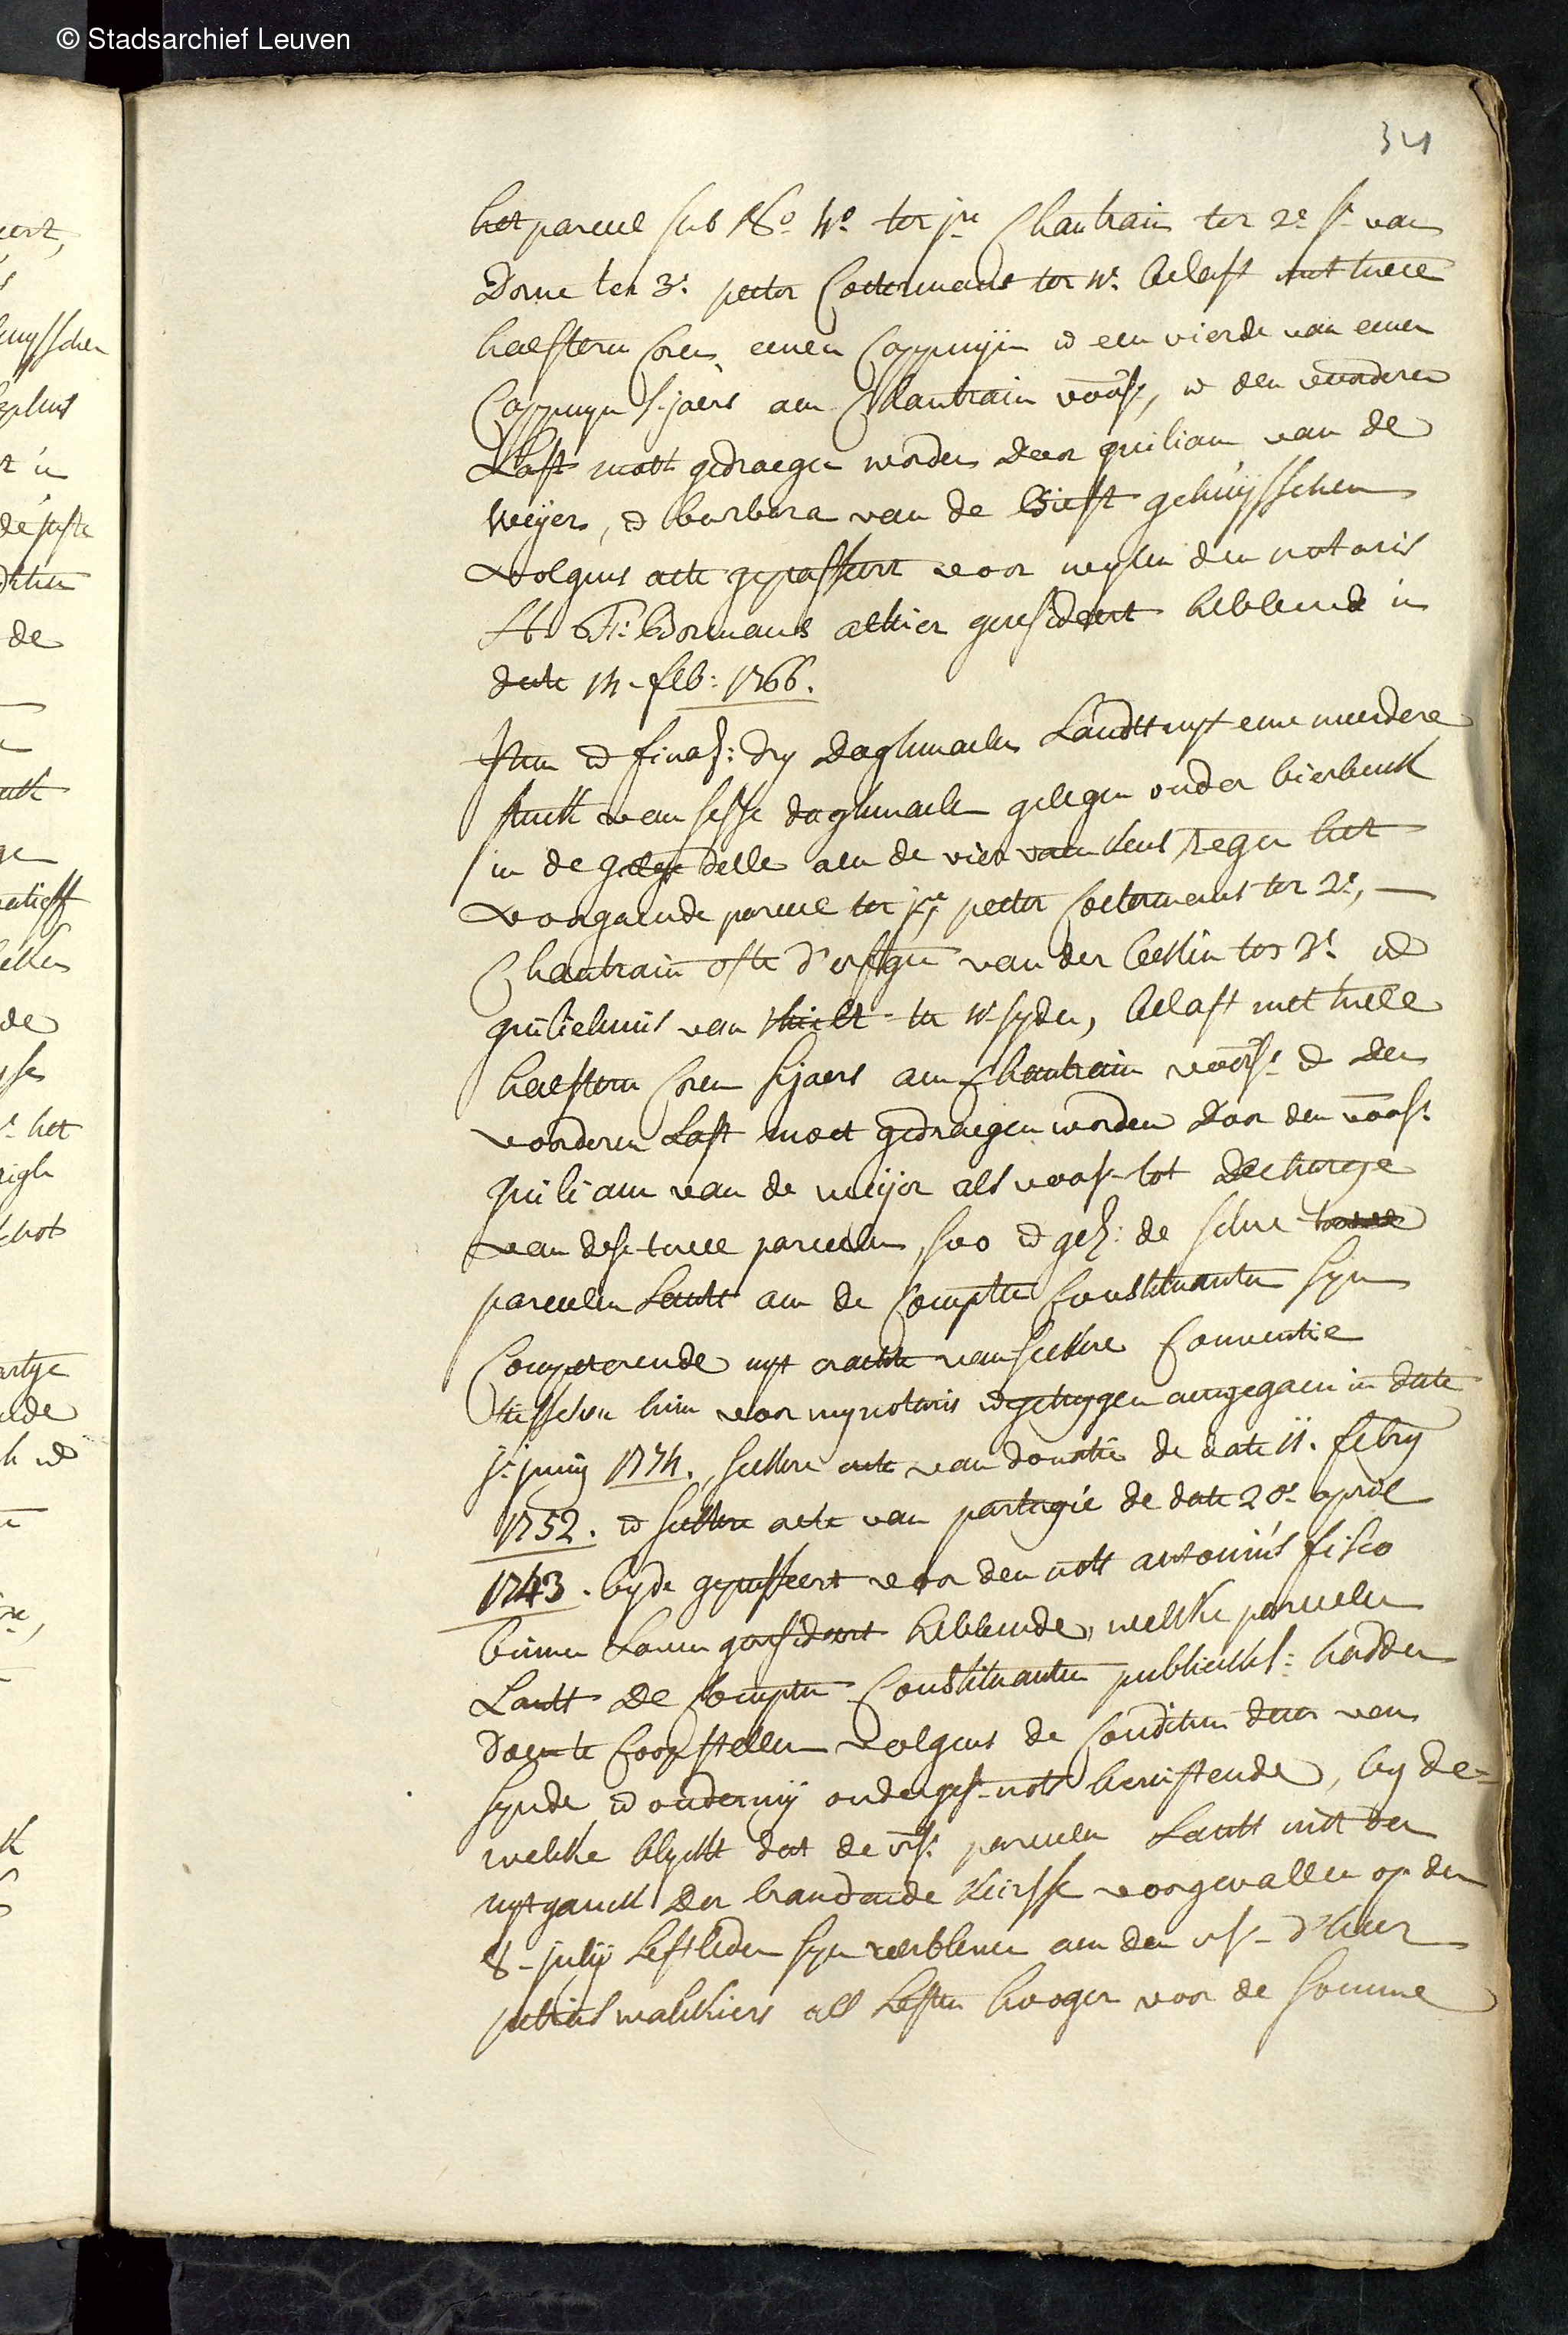 © Stadsarchief Leuven
34
het parceel sub No. 4o. ter jre Chantrain ter 2e sr van
Dorne ter 3e peeter Coetermans ter 4e belast met twee
halsteren Coren, eenen Cappuyn en een vierde van eenen
Cappuyn sjaers aen Chantrain voors, en den voorderen
Last moet gedraegen worden door guiliam van de
Weijer, en barbara van de Biest gehuijsschen
volgens acte gepasseert voor wylen den notaris
Bormans alhier geresideert hebbende in
date 14 feb: 1766.
Item en final: dry daghmaelen Landt uyt eene meerdere
stuck van sesse daghmaelen gelegen onder bierbeeck
in de delle aen de vier tegen het
voorgaende parceel ter jre peeter Coetermans ter 2e,
Chantrain ofte d'erffgen van der ter 3e en
guilielmus van ter 4 syden, belast met twee
halsteren Coren sjaers aen Chantrain voors. en den
voorderen Last moet gedraegen worden door den voors.
guiliam van de weijer als voors tot decharge
van dese twee parceelen, soo en gel: de selve
parceelen Landt aen de Compten Constituanten syn
Competerende uyt crachte van seekere Conventie
tusschen hun voor my notaris en getuygen aengegaen in date
jr juny 1774. seekere acte van donatie de date 11. febry
1752. en seekere acte van partagie de date 20e april
1743. beyde gepasseert voor den nots antonius fisco
binnen Loven geresideert hebbende, welcke parceelen
Landt de Compten Constituanten publieckel: hadden
doen te Coop stellen volgens de Conditien daer van
synde en onder my onderges. nots berustende, by de=
welcke blyckt dat de vs. parceelen Landt mits den
uytganck der brandende keirsse voorgevallen op den
8 julij lestleden syn verbleven aen den vs. d'heer
petrus walckiers als lesten hooger voor de somme